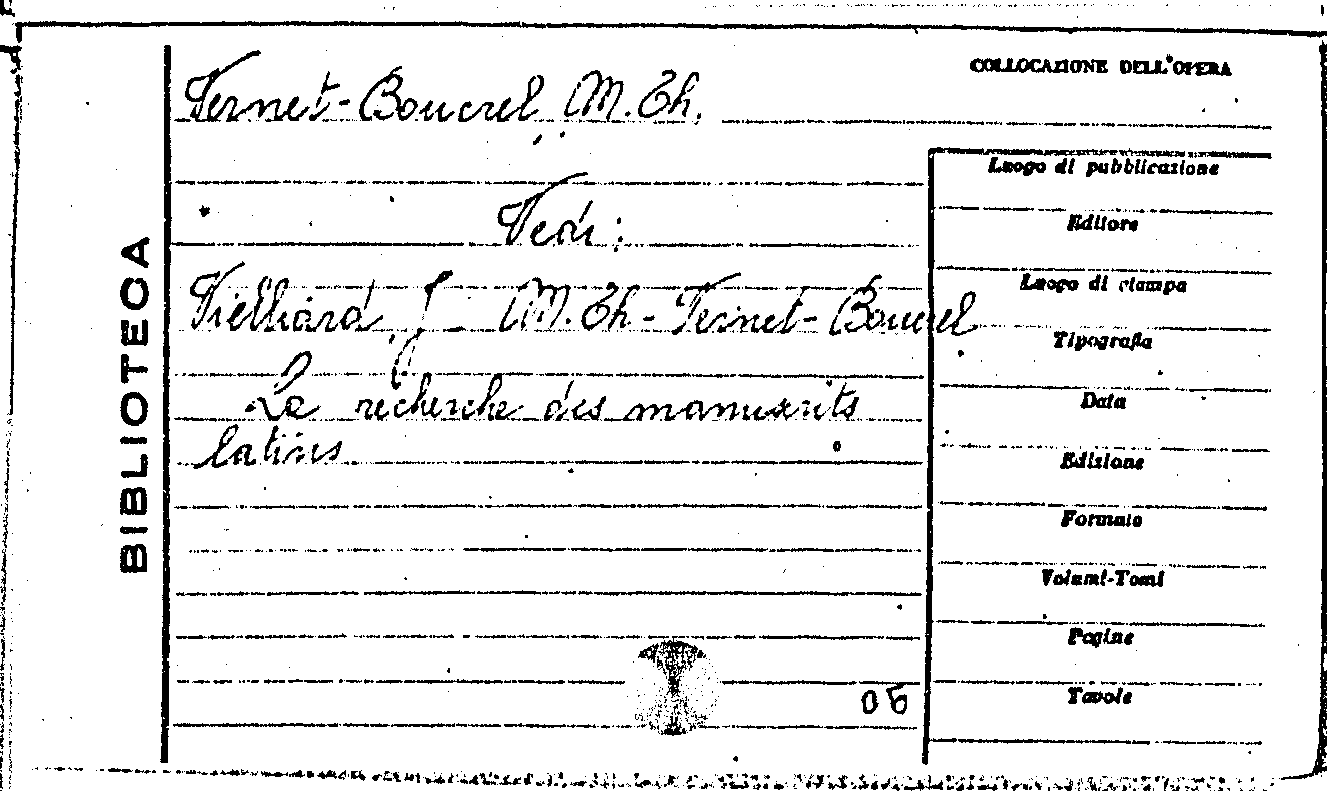 COLLOCAZIONE DELL'OPERA
Vernet-Boucrel M.Th.
Luogo di pubblicazione
Vedi:
Editore
Luogo di stampa
Vielliard, J. - M.Th-Vernet-Boucrel
Tipografia
La recherche des manuscrits
Data
latins
Edizione
Formato
Volumi-Tomi
Pagine
Tavole
06
BIBLIOTECA